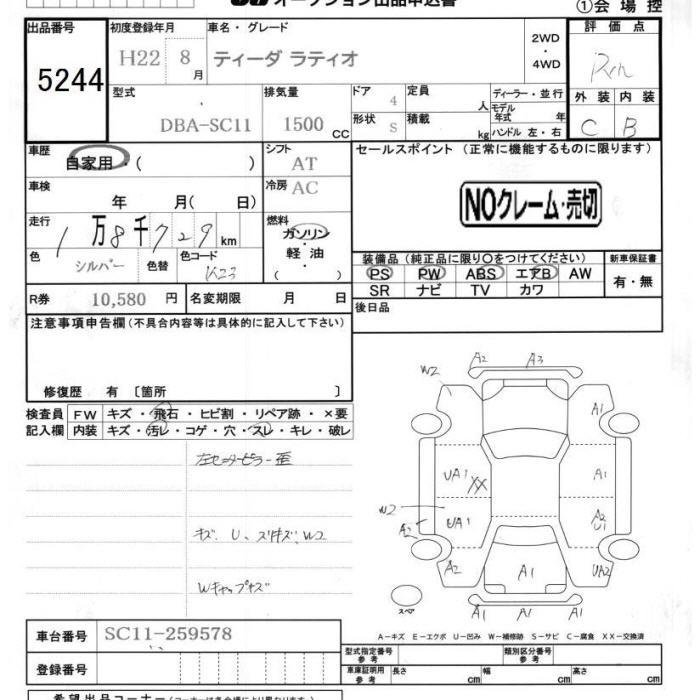 オークション出品申込書
①会 場 控
出品番号 初度登録年月 車名・グレード 評 価 点
5244 H22 8 月 ティーダ ラティオ 2WD ・ 4WD
型式 排気量 ドア 定員 ディーラー・並行 外 装 内 装
DBA-SC11 1500 CC 4 人 モデル年式 年 C B
形状 S 積載 kg ハンドル 左・右
車歴 自家用・( ) シフト AT セールスポイント (正常に機能するものに限ります)
車検 年 月( 日) 冷房 AC
NOクレーム・売切
走行 1 万 8 千 7 2 9 km 燃料 ガソリン・軽油・( )
色 シルバー 色替 色コード K23
装備品(純正品に限り○をつけてください) 新車保証書
PS PW ABS エアB AW 有・無
SR ナビ TV カワ
R券 10,580 円 名変期限 月 日 後日品
注意事項申告欄(不具合内容等は具体的に記入して下さい)
修復歴 有 〔箇所 〕
検査員 FW キズ・飛石・ヒビ割・リペア跡・×要
記入欄 内装 キズ・汚レ・コゲ・穴・スレ・キレ・破レ
左センターピラー歪
キズ、U、スリキズ、W2
Wキャップキズ
A2 A3
W2 A1
UA1 XX A1
W2 A2 UA1 A2 U1
A2 A1 UA2
スペア A1 A1 A1
A-キズ E-エクボ U-凹み W-補修跡 S-サビ C-腐食 XX-交換済
車台番号 SC11-259578
型式指定番号 参考 類別区分番号 参考
登録番号 車庫証明用 参考 長さ cm 幅 cm 高さ cm
希望出品コーナー